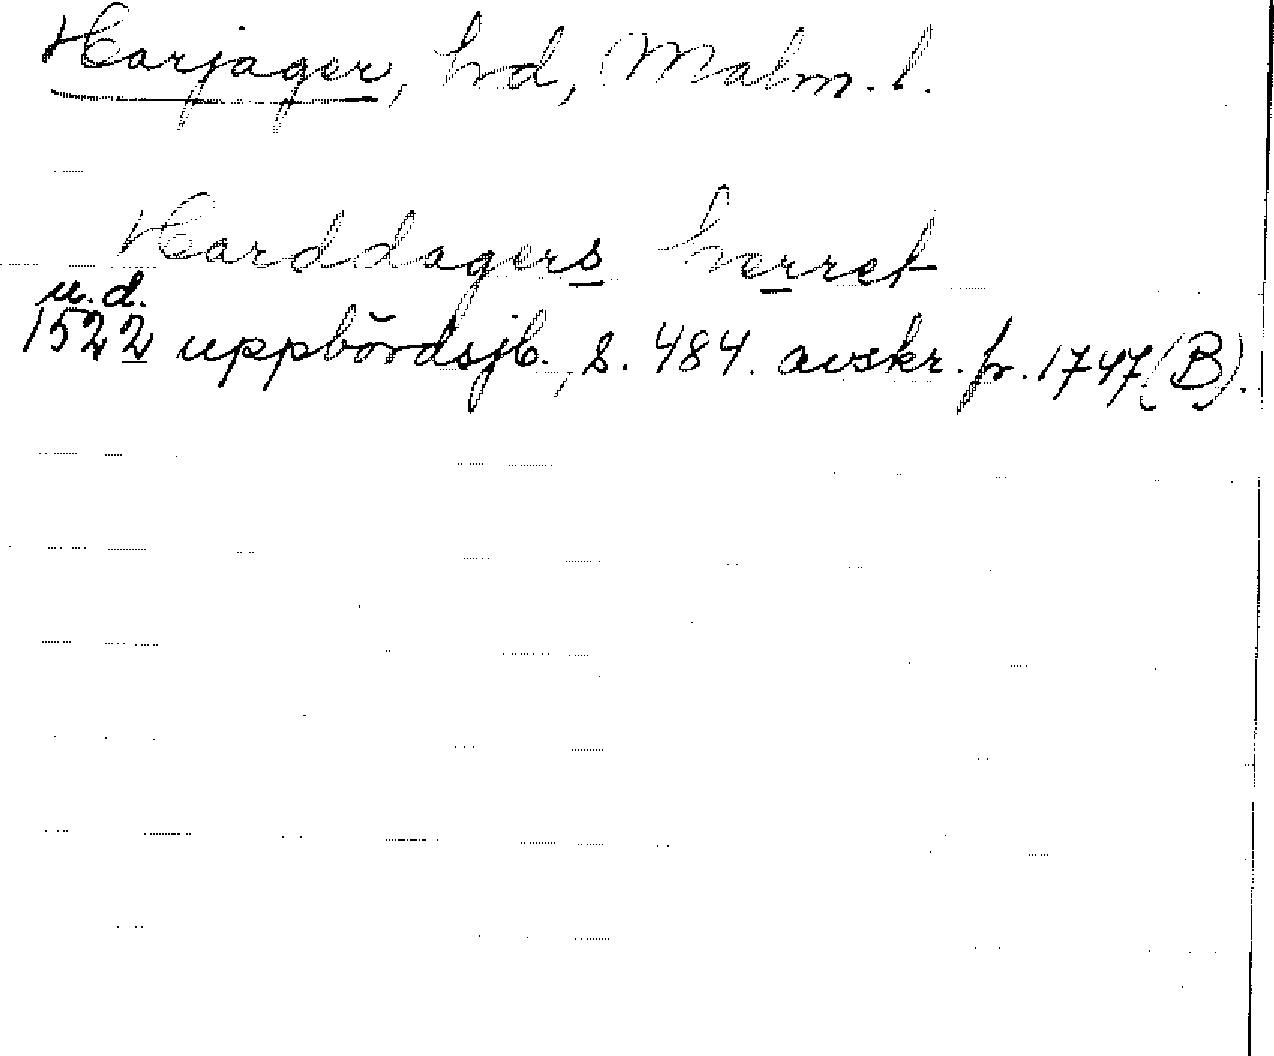 Harjager, hd, Malm. l.
Harddagers herret
u.d.
1522 uppbördsjb., s. 484. avskr. fr. 1747 (B).